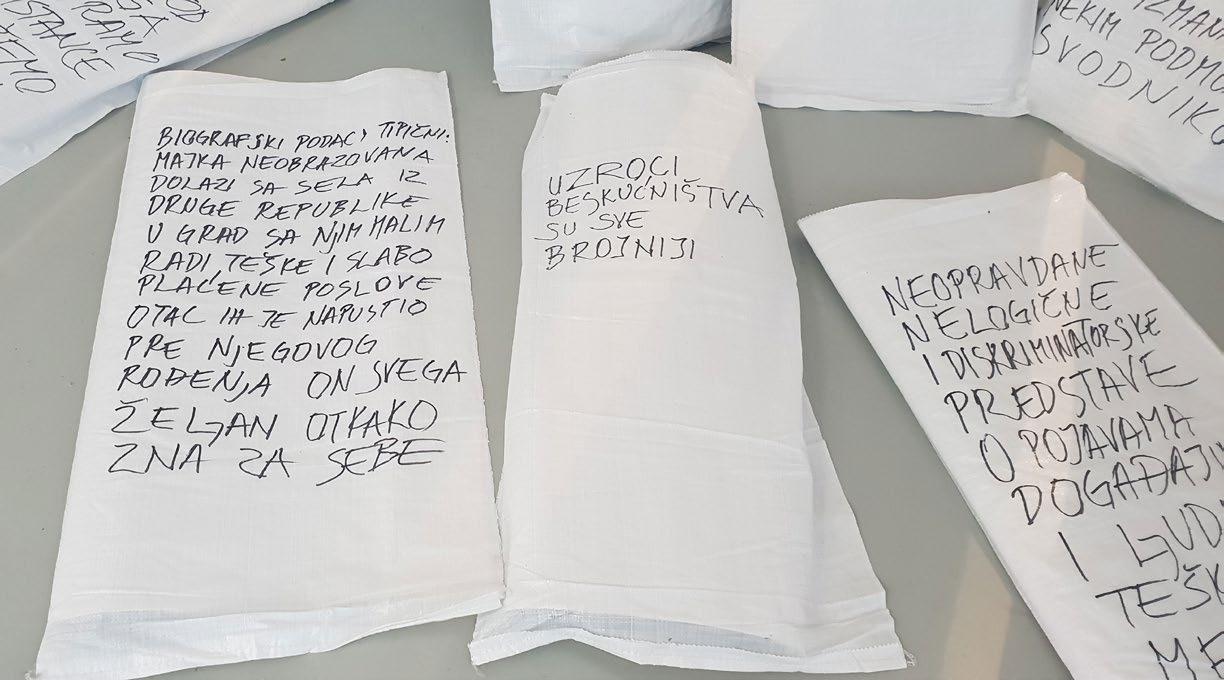 OD
STANCE
BIOGRAFSKI PODACI TIPIČNI:
MAJKA NEOBRAZOVANA
DOLAZI SA SELA IZ
DRUGE REPUBLIKE
U GRAD SA NJIM MALIM
RADI TEŠKE I SLABO
PLAĆENE POSLOVE
OTAC IH JE NAPUSTIO
PRE NJEGOVOG
ROĐENJA ON SVEGA
ŽELJAN OTKAKO
ZNA ZA SEBE
UZROCI
BESKUĆNIŠTVA
SU SVE
BROJNIJI
NEKIM
SVODNIKO
NEOPRAVDANE
NELOGIČNE
I DISKRIMINATORSKE
PREDSTAVE
O POJAVAMA
DOGAĐAJI
I LJUD
TEŠK
ME